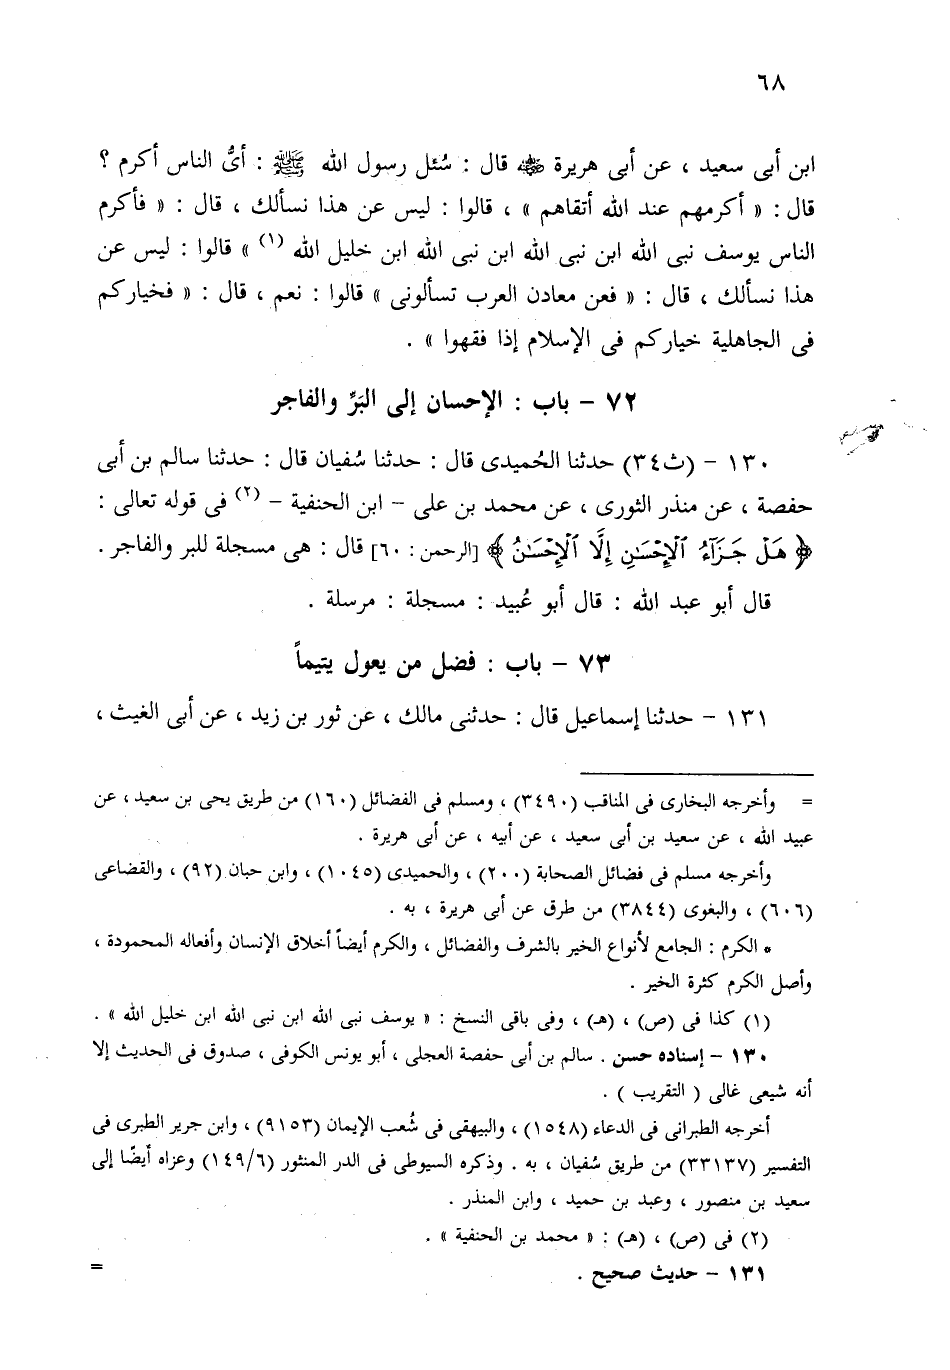 ٦٨
ابن أبى سعيد ، عن أبى هريرة ﷺ قال : سُئل رسول الله ﷺ : أىُّ الناس أكرم ؟
قال : « أكرمهم عند الله أتقاهم » ، قالوا : ليس عن هذا نسألك ، قال : « فأكرم
الناس يوسف نبى الله ابن نبى الله ابن نبى الله ابن خليل الله (١) » قالوا : ليس عن
هذا نسألك ، قال : « فعن معادن العرب تسألونى » قالوا : نعم ، قال : « فخياركم
فى الجاهلية خياركم فى الإسلام إذا فقهوا » .
٧٢ – باب : الإحسان إلى البَرِّ والفاجر
١٣٠ – (ث٣٤) حدثنا الحُميدى قال : حدثنا سُفيان قال : حدثنا سالم بن أبى
حفصة ، عن منذر الثورى ، عن محمد بن على – ابن الحنفية – (٢) فى قوله تعالى :
﴿ هَلْ جَزَآءُ ٱلْإِحْسَـٰنِ إِلَّا ٱلْإِحْسَـٰنُ ﴾ [الرحمن : ٦٠] قال : هى مسجلة للبر والفاجر .
قال أبو عبد الله : قال أبو عُبيد : مسجلة : مرسلة .
٧٣ – باب : فضل من يعول يتيماً
١٣١ – حدثنا إسماعيل قال : حدثنى مالك ، عن ثور بن زيد ، عن أبى الغيث ،
= وأخرجه البخارى فى المناقب (٣٤٩٠) ، ومسلم فى الفضائل (١٦٠) من طريق يحى بن سعيد ، عن
عبيد الله ، عن سعيد بن أبى سعيد ، عن أبيه ، عن أبى هريرة .
وأخرجه مسلم فى فضائل الصحابة (٢٠٠) ، والحميدى (١٠٤٥) ، وابن حبان (٩٢) ، والقضاعى
(٦٠٦) ، والبغوى (٣٨٤٤) من طرق عن أبى هريرة ، به .
* الكرم : الجامع لأنواع الخير بالشرف والفضائل ، والكرم أيضاً أخلاق الإنسان وأفعاله المحمودة ،
وأصل الكرم كثرة الخير .
(١) كذا فى (ص) ، (هـ) ، وفى باقى النسخ : « يوسف نبى الله ابن نبى الله ابن خليل الله » .
١٣٠ – إسناده حسن . سالم بن أبى حفصة العجلى ، أبو يونس الكوفى ، صدوق فى الحديث إلا
أنه شيعى غالى ( التقريب ) .
أخرجه الطبرانى فى الدعاء (١٥٤٨) ، والبيهقى فى شُعب الإيمان (٩١٥٣) ، وابن جرير الطبرى فى
التفسير (٣٣١٣٧) من طريق سُفيان ، به . وذكره السيوطى فى الدر المنثور (١٤٩/٦) وعزاه أيضًا إلى
سعيد بن منصور ، وعبد بن حميد ، وابن المنذر .
(٢) فى (ص) ، (هـ) : « محمد بن الحنفية » .
١٣١ – حديث صحيح . =